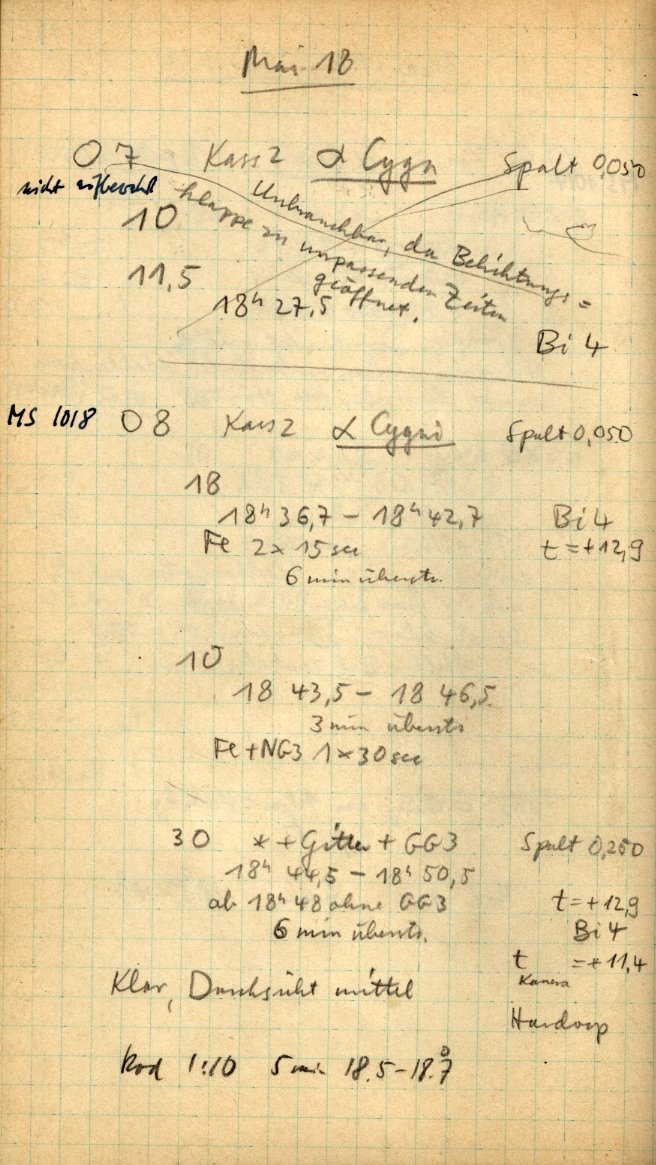 Mai 18
07 Kass2 α Cygn Spalt 0,050
nicht aufbewahrt
Unbrauchbar, da Belichtungs=
klappe zu unpassenden Zeiten
geöffnet.
10
11,5
18ʰ 27,5
Bi 4
MS 1018 08 Kass2 α Cygni Spalt 0,050
18
18ʰ 36,7 – 18ʰ 42,7 Bi 4
Fe 2 × 15 sec t = +12,9
6 min überstr.
10
18 43,5 – 18 46,5
3 min überstr
Fe + NG3 1 × 30 sec
30 * + Gitter + GG3 Spalt 0,250
18ʰ 44,5 – 18ʰ 50,5
ab 18ʰ 48 ohne GG3 t = +12,9
6 min überstr. Bi 4
t = +11,4
Kamera
Klar, Durchsicht mittel
Rod 1:10 5 min 18.5 – 18.7